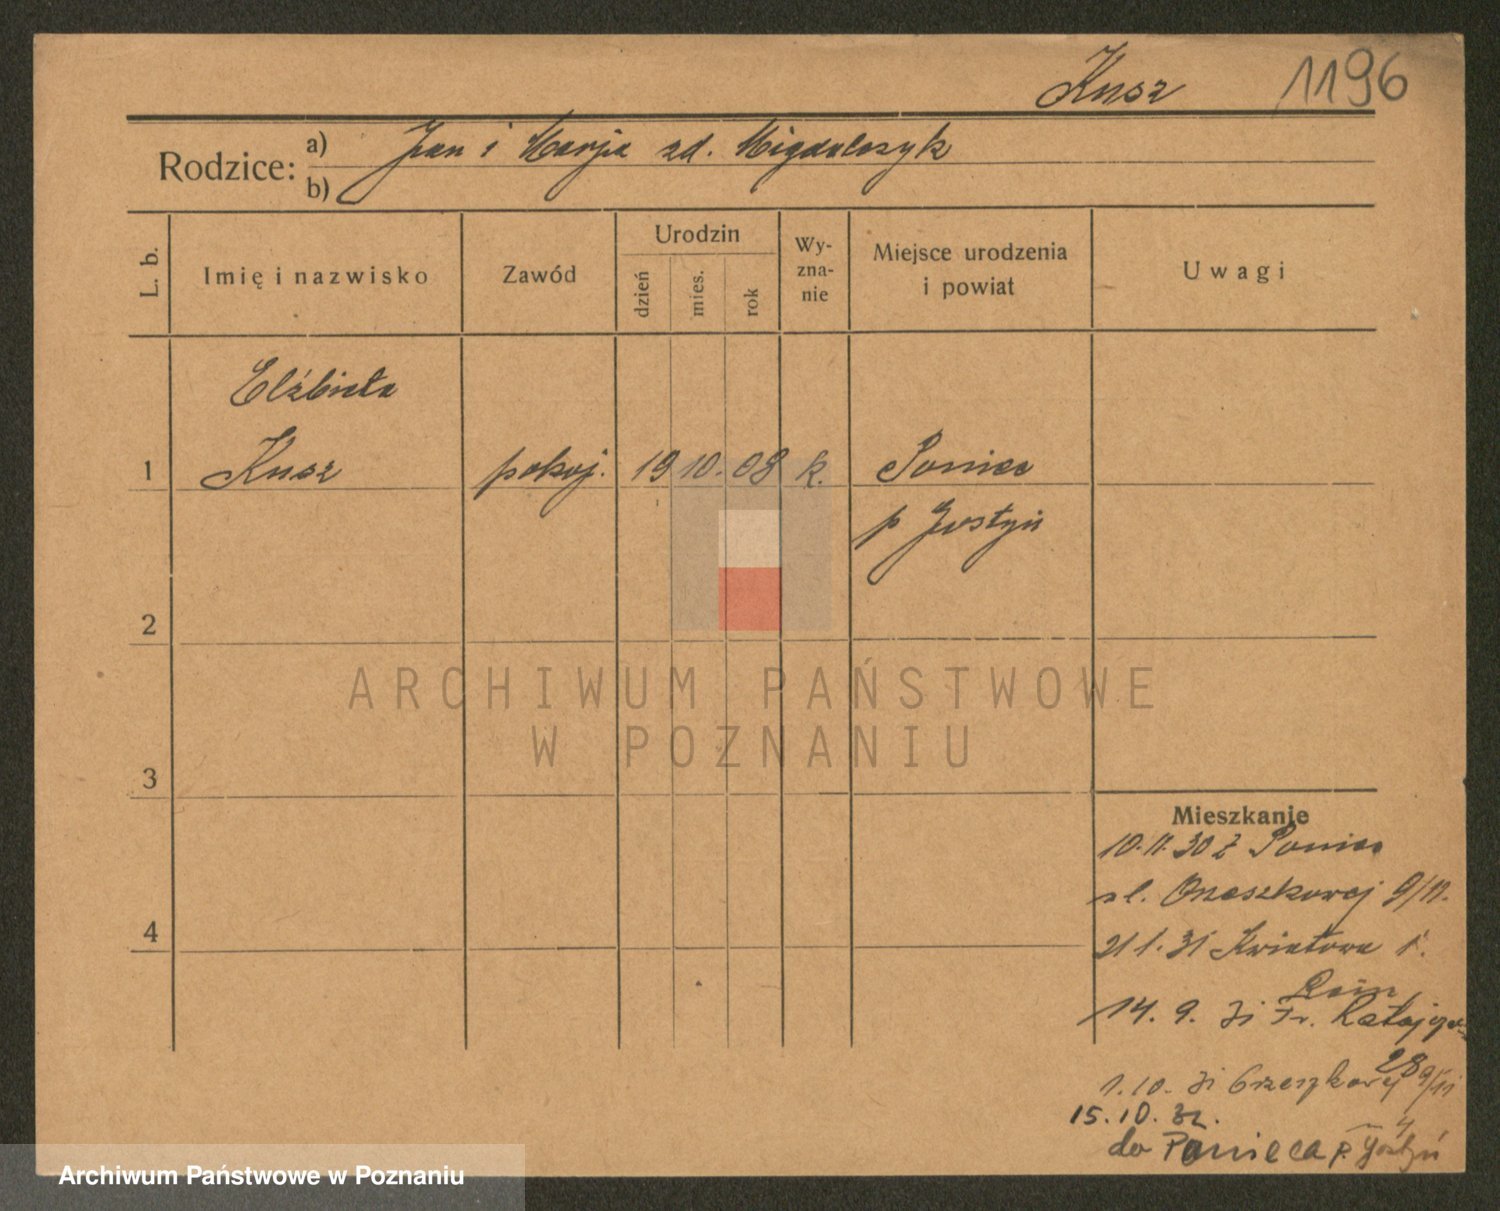 Kusz 1196
Rodzice: a) Jan i Marja zd. Migdalczyk
b)
L. b.
Imię i nazwisko
Zawód
Urodzin
dzień
mies.
rok
Wy-
zna-
nie
Miejsce urodzenia
i powiat
Uwagi
Elżbieta
1 Kusz pokoj. 19 10. 08 k. Poniec
p Gostyń
2
3
4
ARCHIWUM PAŃSTWOWE
W POZNANIU
Mieszkanie
10.11.30 z Poniec
ul. Orzeszkowej 9/11.
21 1. 31 Kwiatowa 1.
14. 9. 31 Fr. Ratajcza
28
1.10. 31 Orzeszkowej 9/11
15.10.32.
do Ponieca p. Gostyń
Archiwum Państwowe w Poznaniu